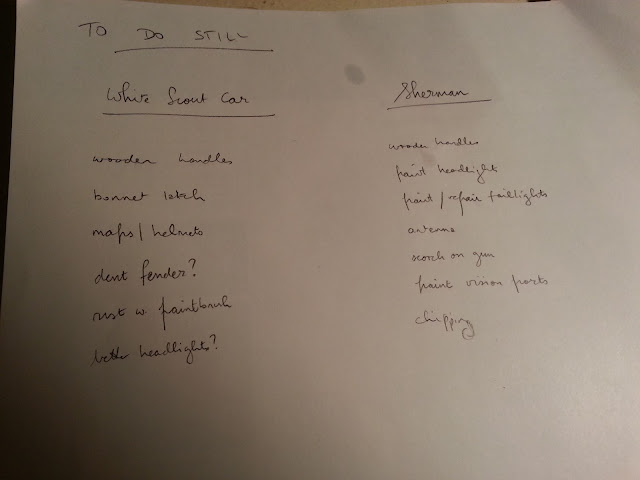 TO DO STILL
White Scout Car
wooden handles
bonnet latch
maps / helmets
dent fender?
rust w. paintbrush
better headlights?
Sherman
wooden handles
paint headlights
paint / repair taillights
antenna
scorch on gun
paint vision ports
chipping